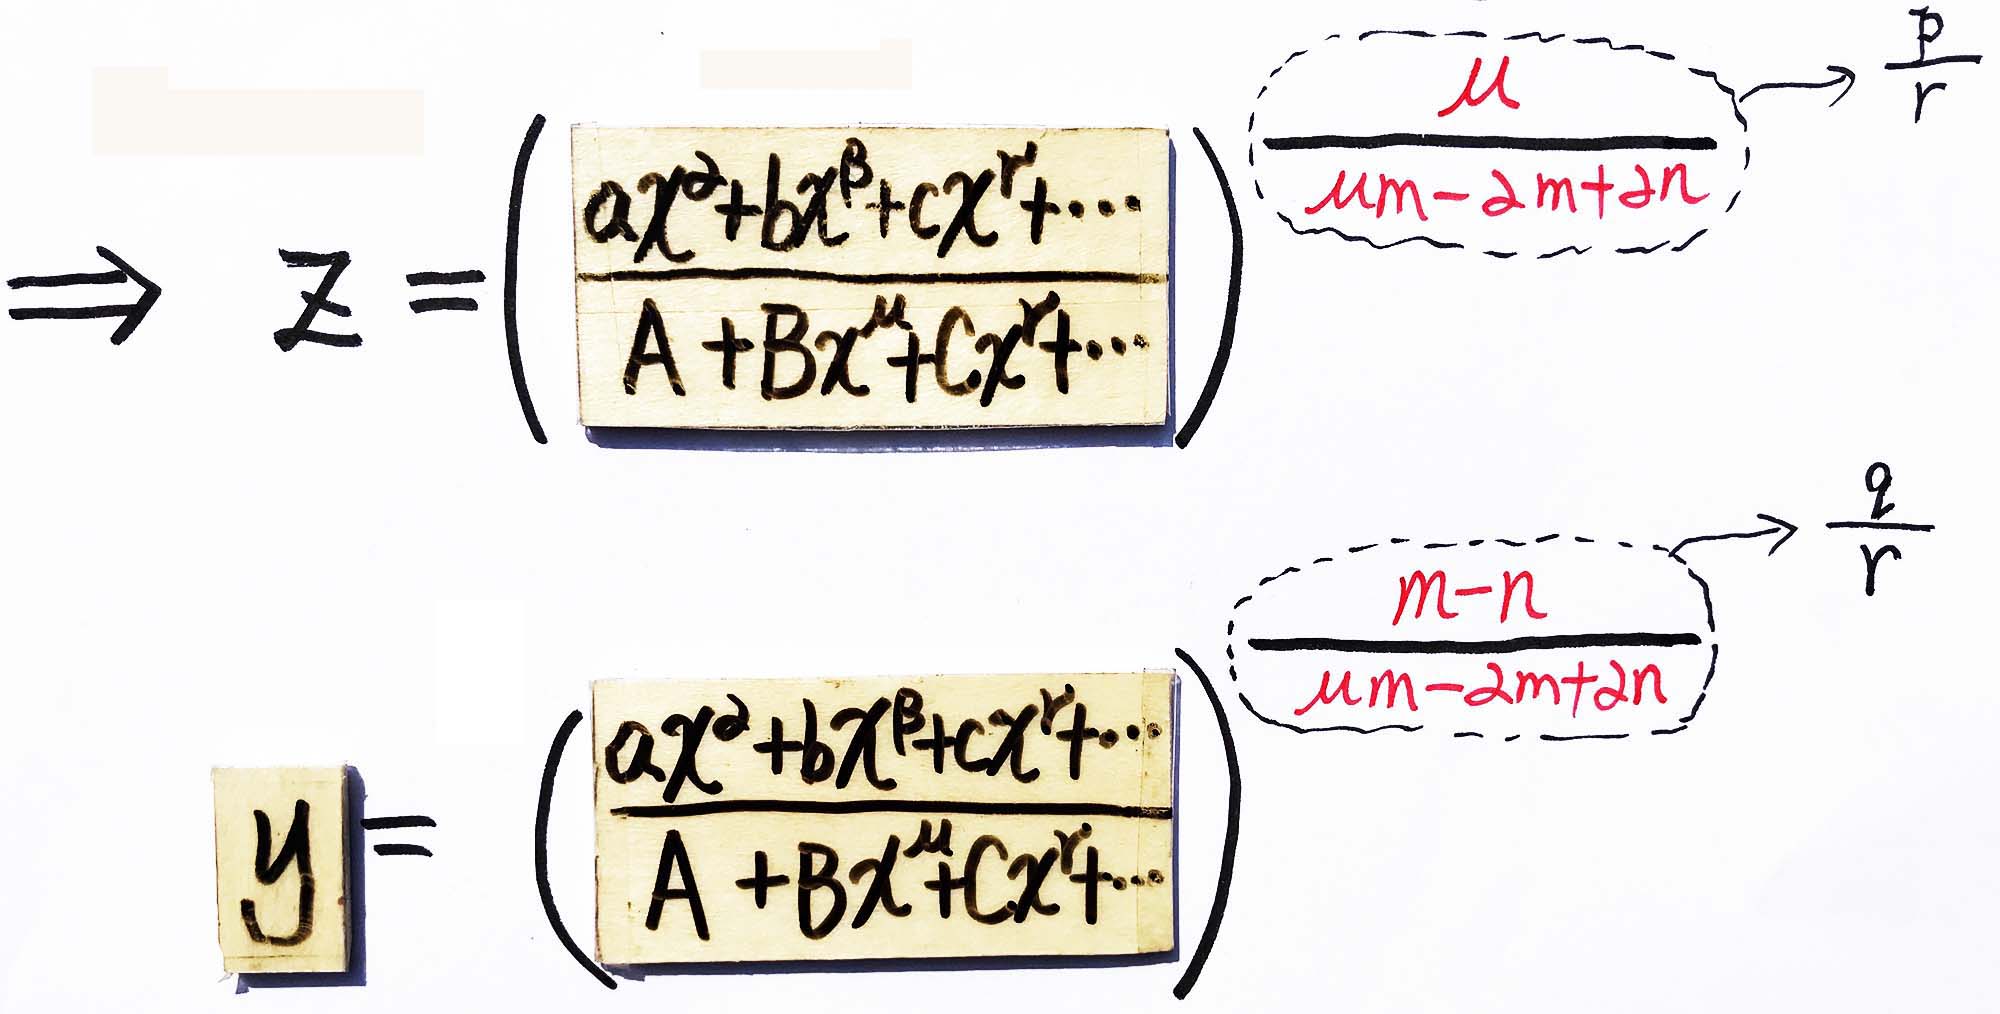 ⇒ z = ( (ax^α+bx^β+cx^γ+⋯) / (A+Bx^μ+Cx^γ+⋯) )^(μ / (μm-2m+2n)) → p/r
y = ( (ax^α+bx^β+cx^γ+⋯) / (A+Bx^μ+Cx^γ+⋯) )^((m-n) / (μm-2m+2n)) → q/r